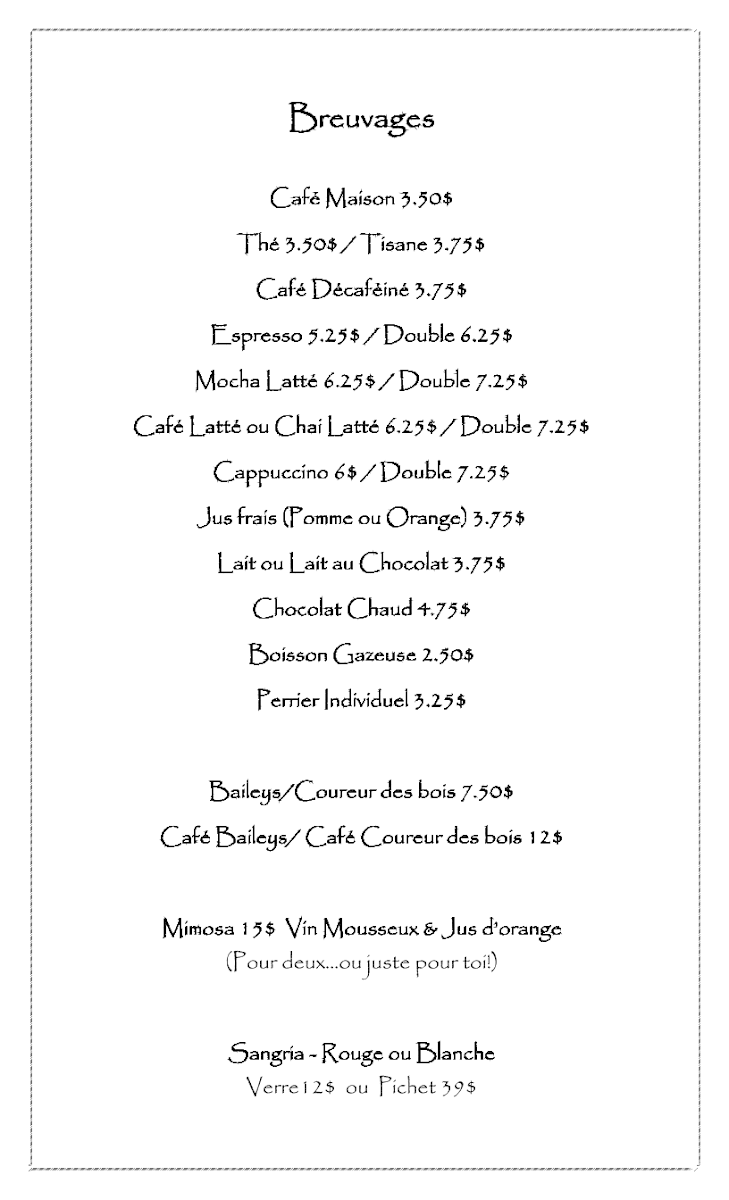 Breuvages
Café Maison 3.50$
Thé 3.50$ / Tisane 3.75$
Café Décaféiné 3.75$
Espresso 5.25$ / Double 6.25$
Mocha Latté 6.25$ / Double 7.25$
Café Latté ou Chai Latté 6.25$ / Double 7.25$
Cappuccino 6$ / Double 7.25$
Jus frais (Pomme ou Orange) 3.75$
Lait ou Lait au Chocolat 3.75$
Chocolat Chaud 4.75$
Boisson Gazeuse 2.50$
Perrier Individuel 3.25$
Baileys/Coureur des bois 7.50$
Café Baileys/ Café Coureur des bois 12$
Mimosa 15$ Vin Mousseux & Jus d'orange
(Pour deux...ou juste pour toi!)
Sangria - Rouge ou Blanche
Verre12$ ou Pichet 39$